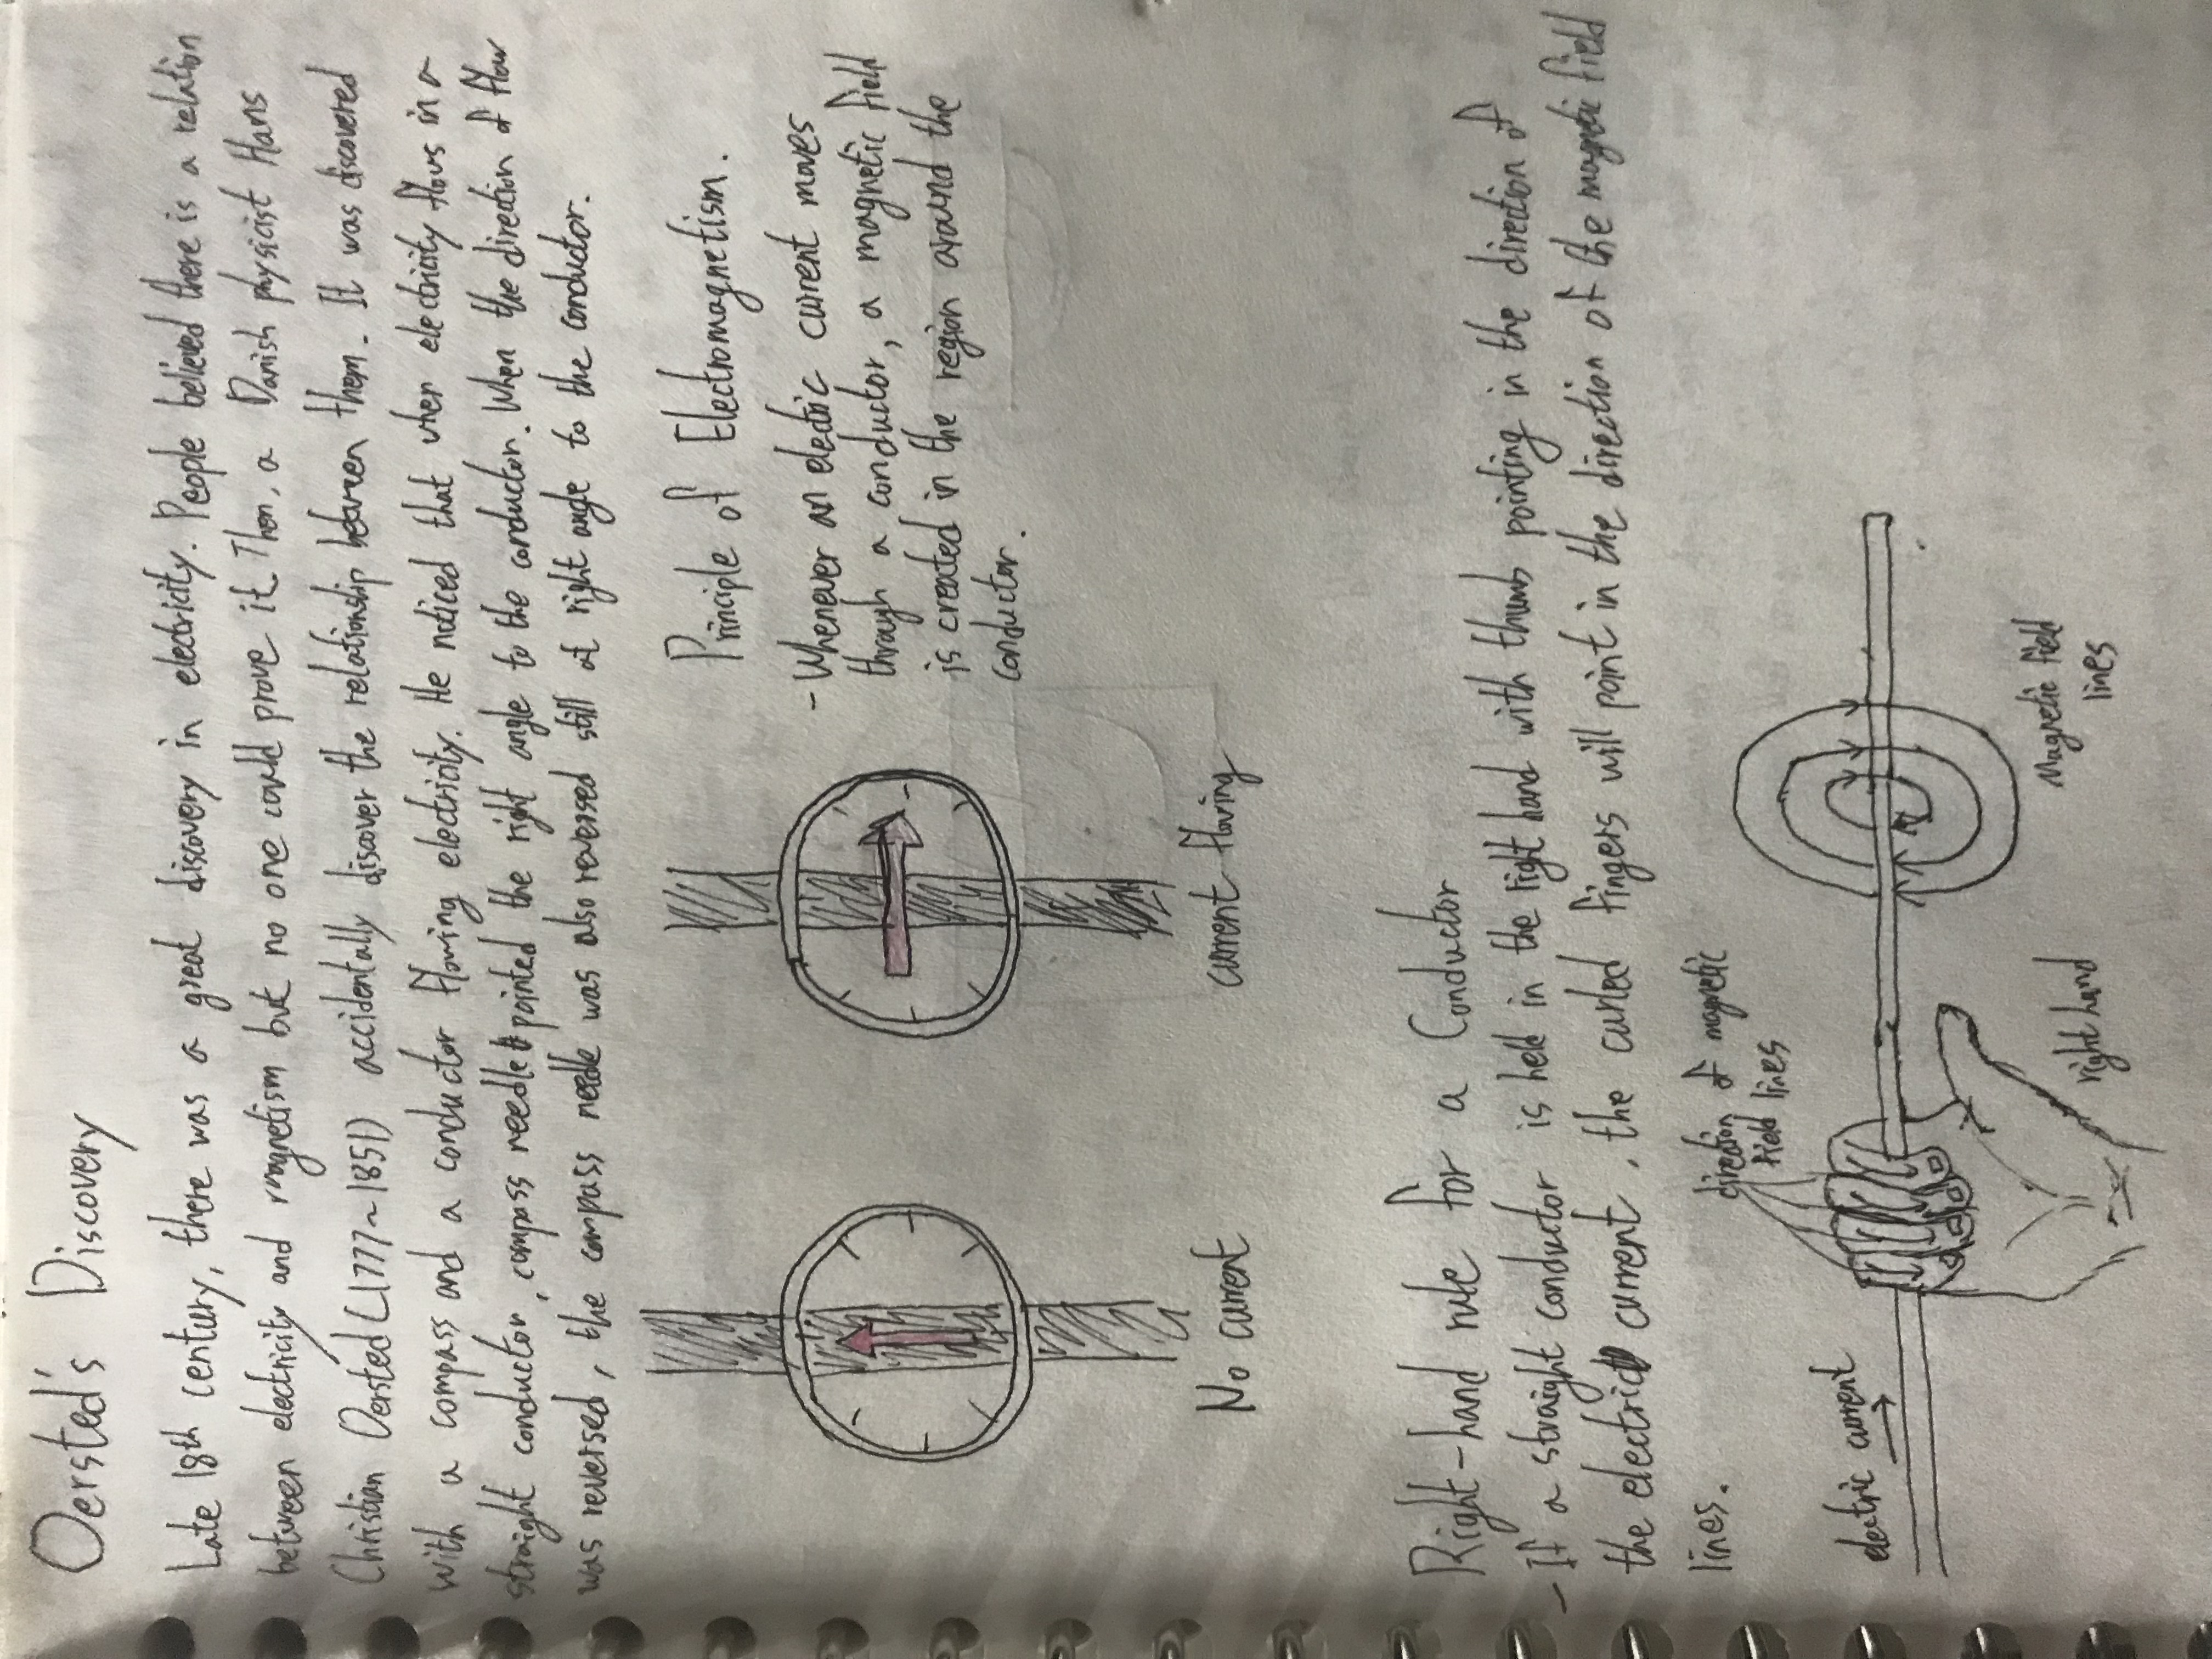 Oersted's Discovery
Late 18th century, there was a great discovery in electricity. People believed there is a relation
between electricity and magnetism but no one could prove it. Then, a Danish physicist Hans
Christian Oersted (1777~1851) accidentally discover the relationship between them. It was discovered
with a compass and a conductor flowing electricity. He noticed that when electricity flows in a
straight conductor, compass needle pointed the right angle to the conductor. When the direction of flow
was reversed, the compass needle was also reversed still at right angle to the conductor.
No current
current flowing
Principle of Electromagnetism.
- Whenever an electric current moves
through a conductor, a magnetic field
is created in the region around the
conductor.
Right-hand rule for a Conductor
- If a straight conductor is held in the right hand with thumb pointing in the direction of
the electric current, the curled fingers will point in the direction of the magnetic field
lines.
electric current
direction of magnetic
field lines
right hand
Magnetic field
lines